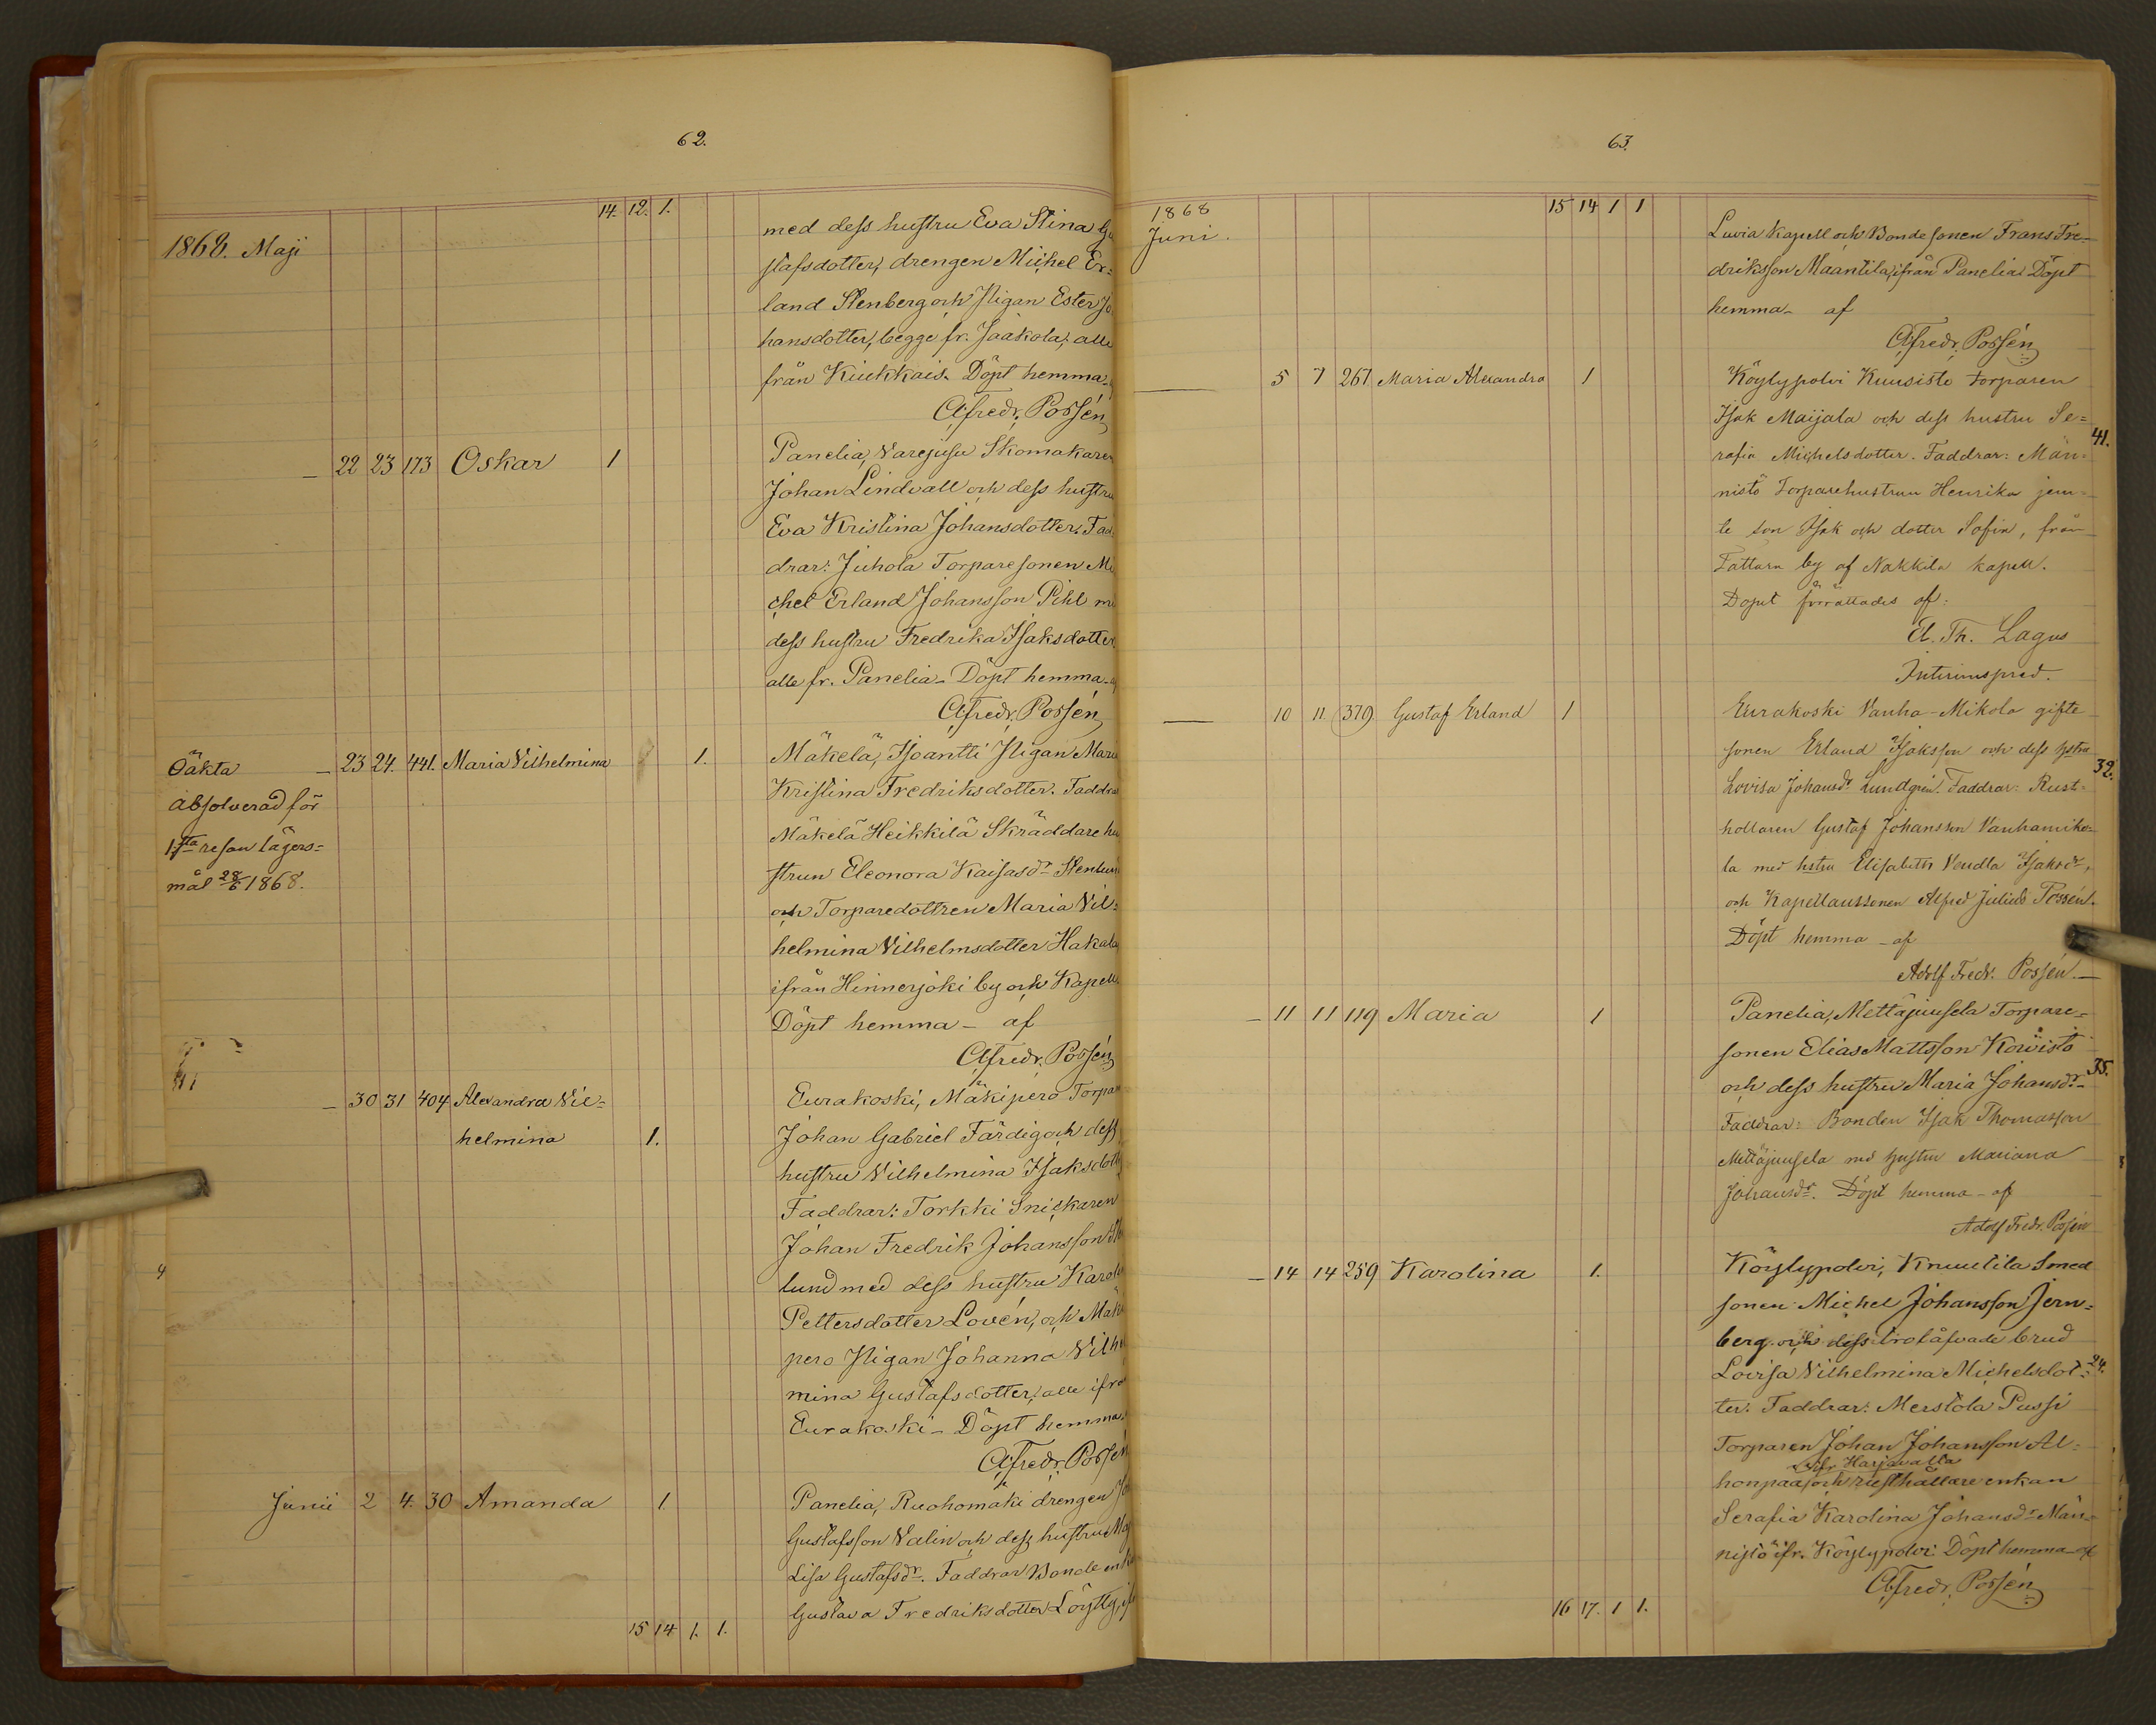 62.
14. 12. 1.
1868. Maji
med dess hustru Eva Stina Gu
stafsdotter, drengen Michel Er=
land Stenberg och Pigan Ester Jo
hansdotter, begge fr. Jaakola, alle
från Kiukkais. Döpt hemma
AFredr. Possén
22 23 173 Oskar 1
Panelia, Varejusu Skomakaren
Johan Lindvall och dess hustru
Eva Kristina Johansdotter. Fad
drar: Juhola Torparesonen Mi
chel Erland Johansson Pihl me
dess hustru Fredrika Isaksdotter
alle fr. Panelia. Döpt hemma
AFredr. Possén
Oäkta
absolverad för
1sta resan lägers=
mål 28/6 1868.
23 24. 441. Maria Vilhelmina 1.
Mäkelä, Isoantti Pigan Maria
Kristina Fredriksdotter. Faddrar
Mäkelä Heikkilä Skräddarehu
strun Eleonora Kaisasdr Stenlund
och Torparedottren Maria Vil=
helmina Vilhelmsdotter Hakala
ifrån Hinnerjoki by och Kapell.
Döpt hemma – af
AFredr. Possén
30 31 404 Alexandra Vil=
helmina 1.
Eurakoski, Mäkiperö Torpar
Johan Gabriel Färdig och dess
hustru Vilhelmina Isaksdott
Faddrar: Torkki Snickaren
Johan Fredrik Johansson
lund med dess hustru Karoli
Pettersdotter Lovén, och Mäki
pero Pigan Johanna Vilhe
mina Gustafsdotter, alle ifrå
Eurakoski – Döpt hemma
AFredr. Possén
Junii 2 4. 30 Amanda 1.
Panelia, Ruohomäki drengen Jo
Gustafsson Valin och dess hustru Maj
Lisa Gustafsdr. Faddrar Bonde enk
Gustava Fredriksdotter Löytty, if
15 14 1. 1.
63.
15 14 1 1
1868
Juni.
Luvia Kapell och Bondesonen Frans Fre=
driksson Maantila, ifrån Panelia. Döpt
hemma – af
AFredr. Possén
5 7 267 Maria Alexandra 1
Köylypolvi Kuusisto torparen
Isak Maijala och dess hustru Se=
rafia Michelsdotter. Faddrar: Män=
nistö Torparehustrun Henrika jem=
te son Isak och dotter Sofia, från
Tattara by af Nakkila kapell.
Dopet förrättades af:
El. Th. Lagus
Interimspred.
41.
10 11 379 Gustaf Erland 1
Eurakoski Vanha-Mikola gifte
sonen Erland Isaksson och dess hstru
Lovisa Johansdr Lundgrén. Faddrar: Rust=
hollaren Gustaf Johansson Vanhamiko=
la med hstru Elisabeth Vendla Isaksdr,
och Kapellanssonen Alfred Julius Possén.
Döpt hemma – af
Adolf Fredr. Possén.
32.
11 11 119 Maria 1
Panelia, Mettäjuusela Torpare=
sonen Elias Mattsson Koivisto
och dess hustru Maria Johansdr
Faddrar: Bonden Isak Thomasson
Mettäjuusela med hustru Mariana
Johansdr. Döpt hemma – af
Adolf Fredr. Possén
35.
14 14 259 Karolina 1.
Köylypolvi, Knuutila Smed
sonen Michel Johansson Jern=
berg och dess trolåfvade brud
Lovisa Vilhelmina Michelsdot=
ter. Faddrar: Merstola Pussi
Torparen Johan Johansson Al=
ifr. Harjavalla
honpää och rusthållare enkan
Serafia Karolina Johansdr Män=
nistö ifr. Köylypolvi Döpt hemma – af
AFredr. Possén
24.
16 17. 1 1.